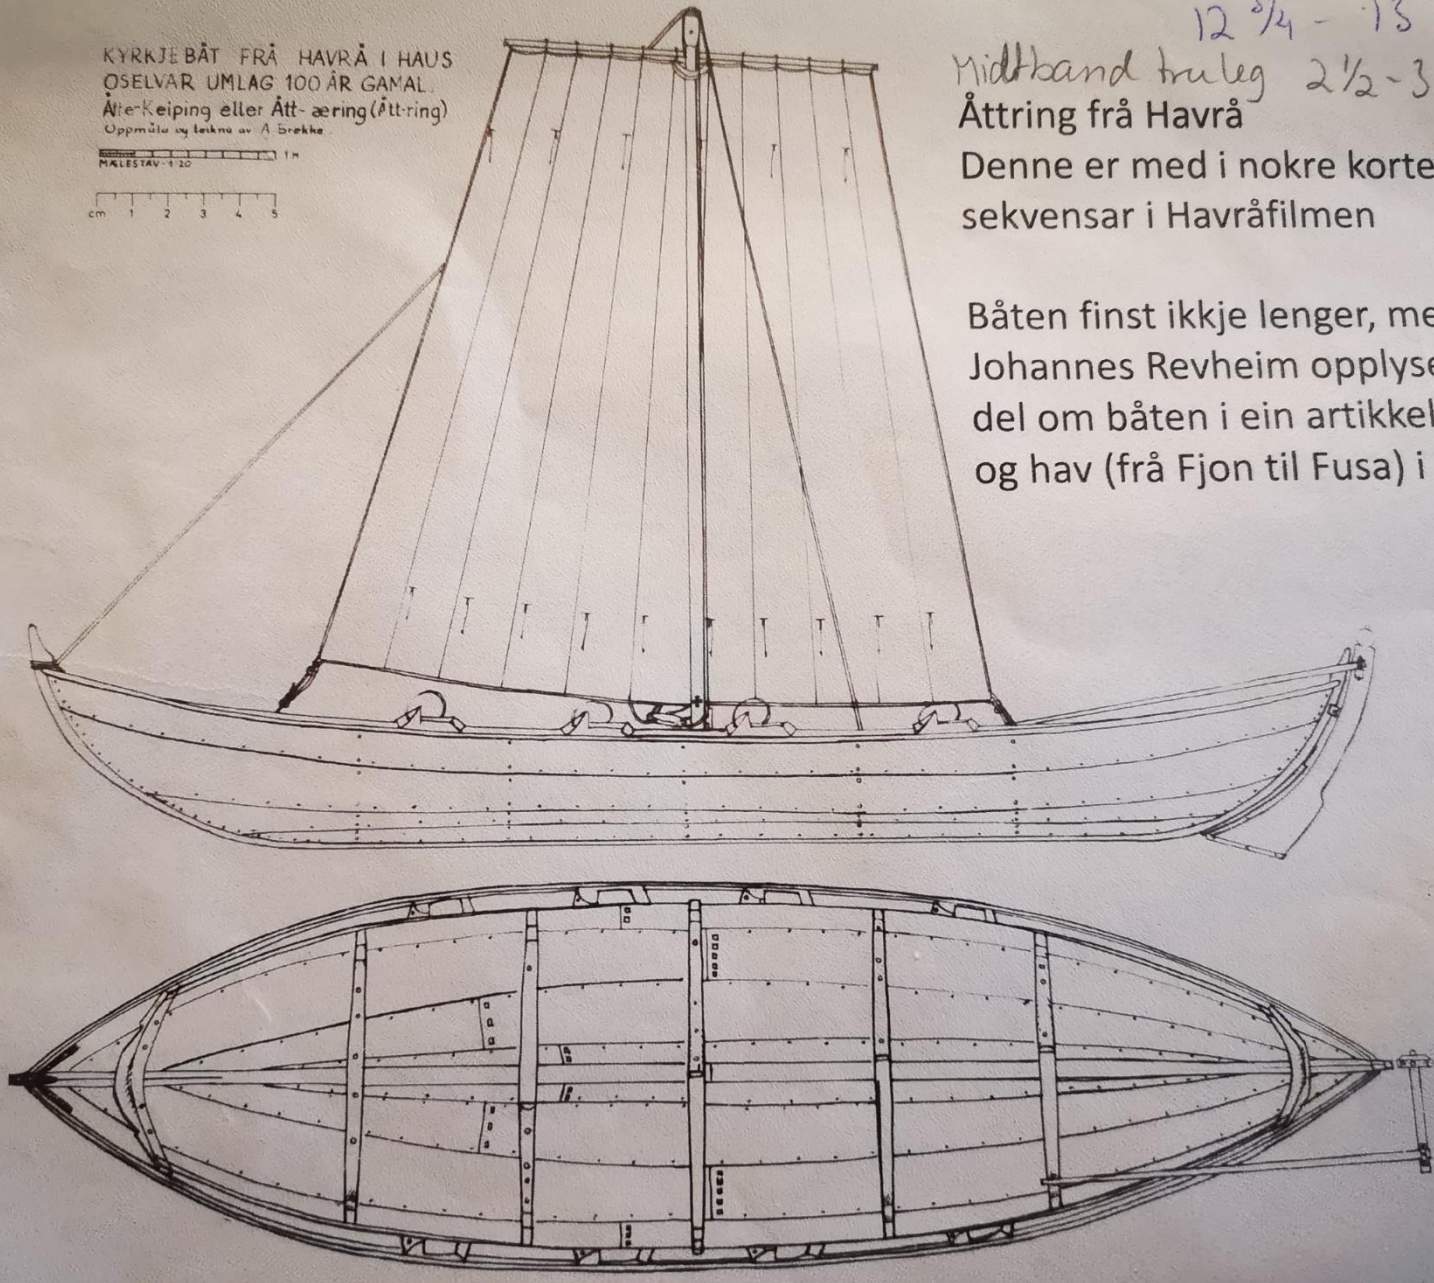 KYRKJEBÅT FRÅ HAVRÅ I HAUS
OSELVAR UMLAG 100 ÅR GAMAL.
Åtte-Keiping eller Ått-æring (Ått-ring)
Uppmåla og teikna av A Brekke
1 M
MÆLESTAV 1:20
cm 1 2 3 4 5
12 3/4 - 13
Midtband truleg 2 1/2 - 3
Åttring frå Havrå
Denne er med i nokre korte
sekvensar i Havråfilmen
Båten finst ikkje lenger, me
Johannes Revheim opplyse
del om båten i ein artikkel
og hav (frå Fjon til Fusa) i